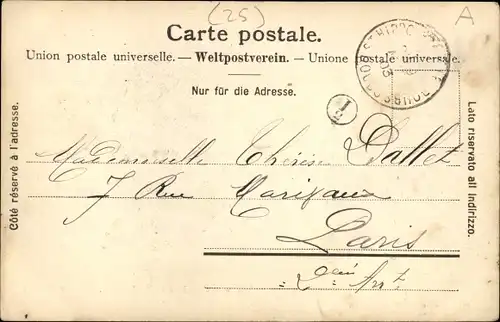 (25)
A
Carte postale.
Union postale universelle. — Weltpostverein. — Unione postale universale.
Nur für die Adresse.
Côté réservé à l'adresse.
Lato riservato all indirizzo.
ST HIPPOLYTE
03
1
Mademoiselle Thérèse Dallet
7 Rue Marivaux
Paris
2ème Arrt